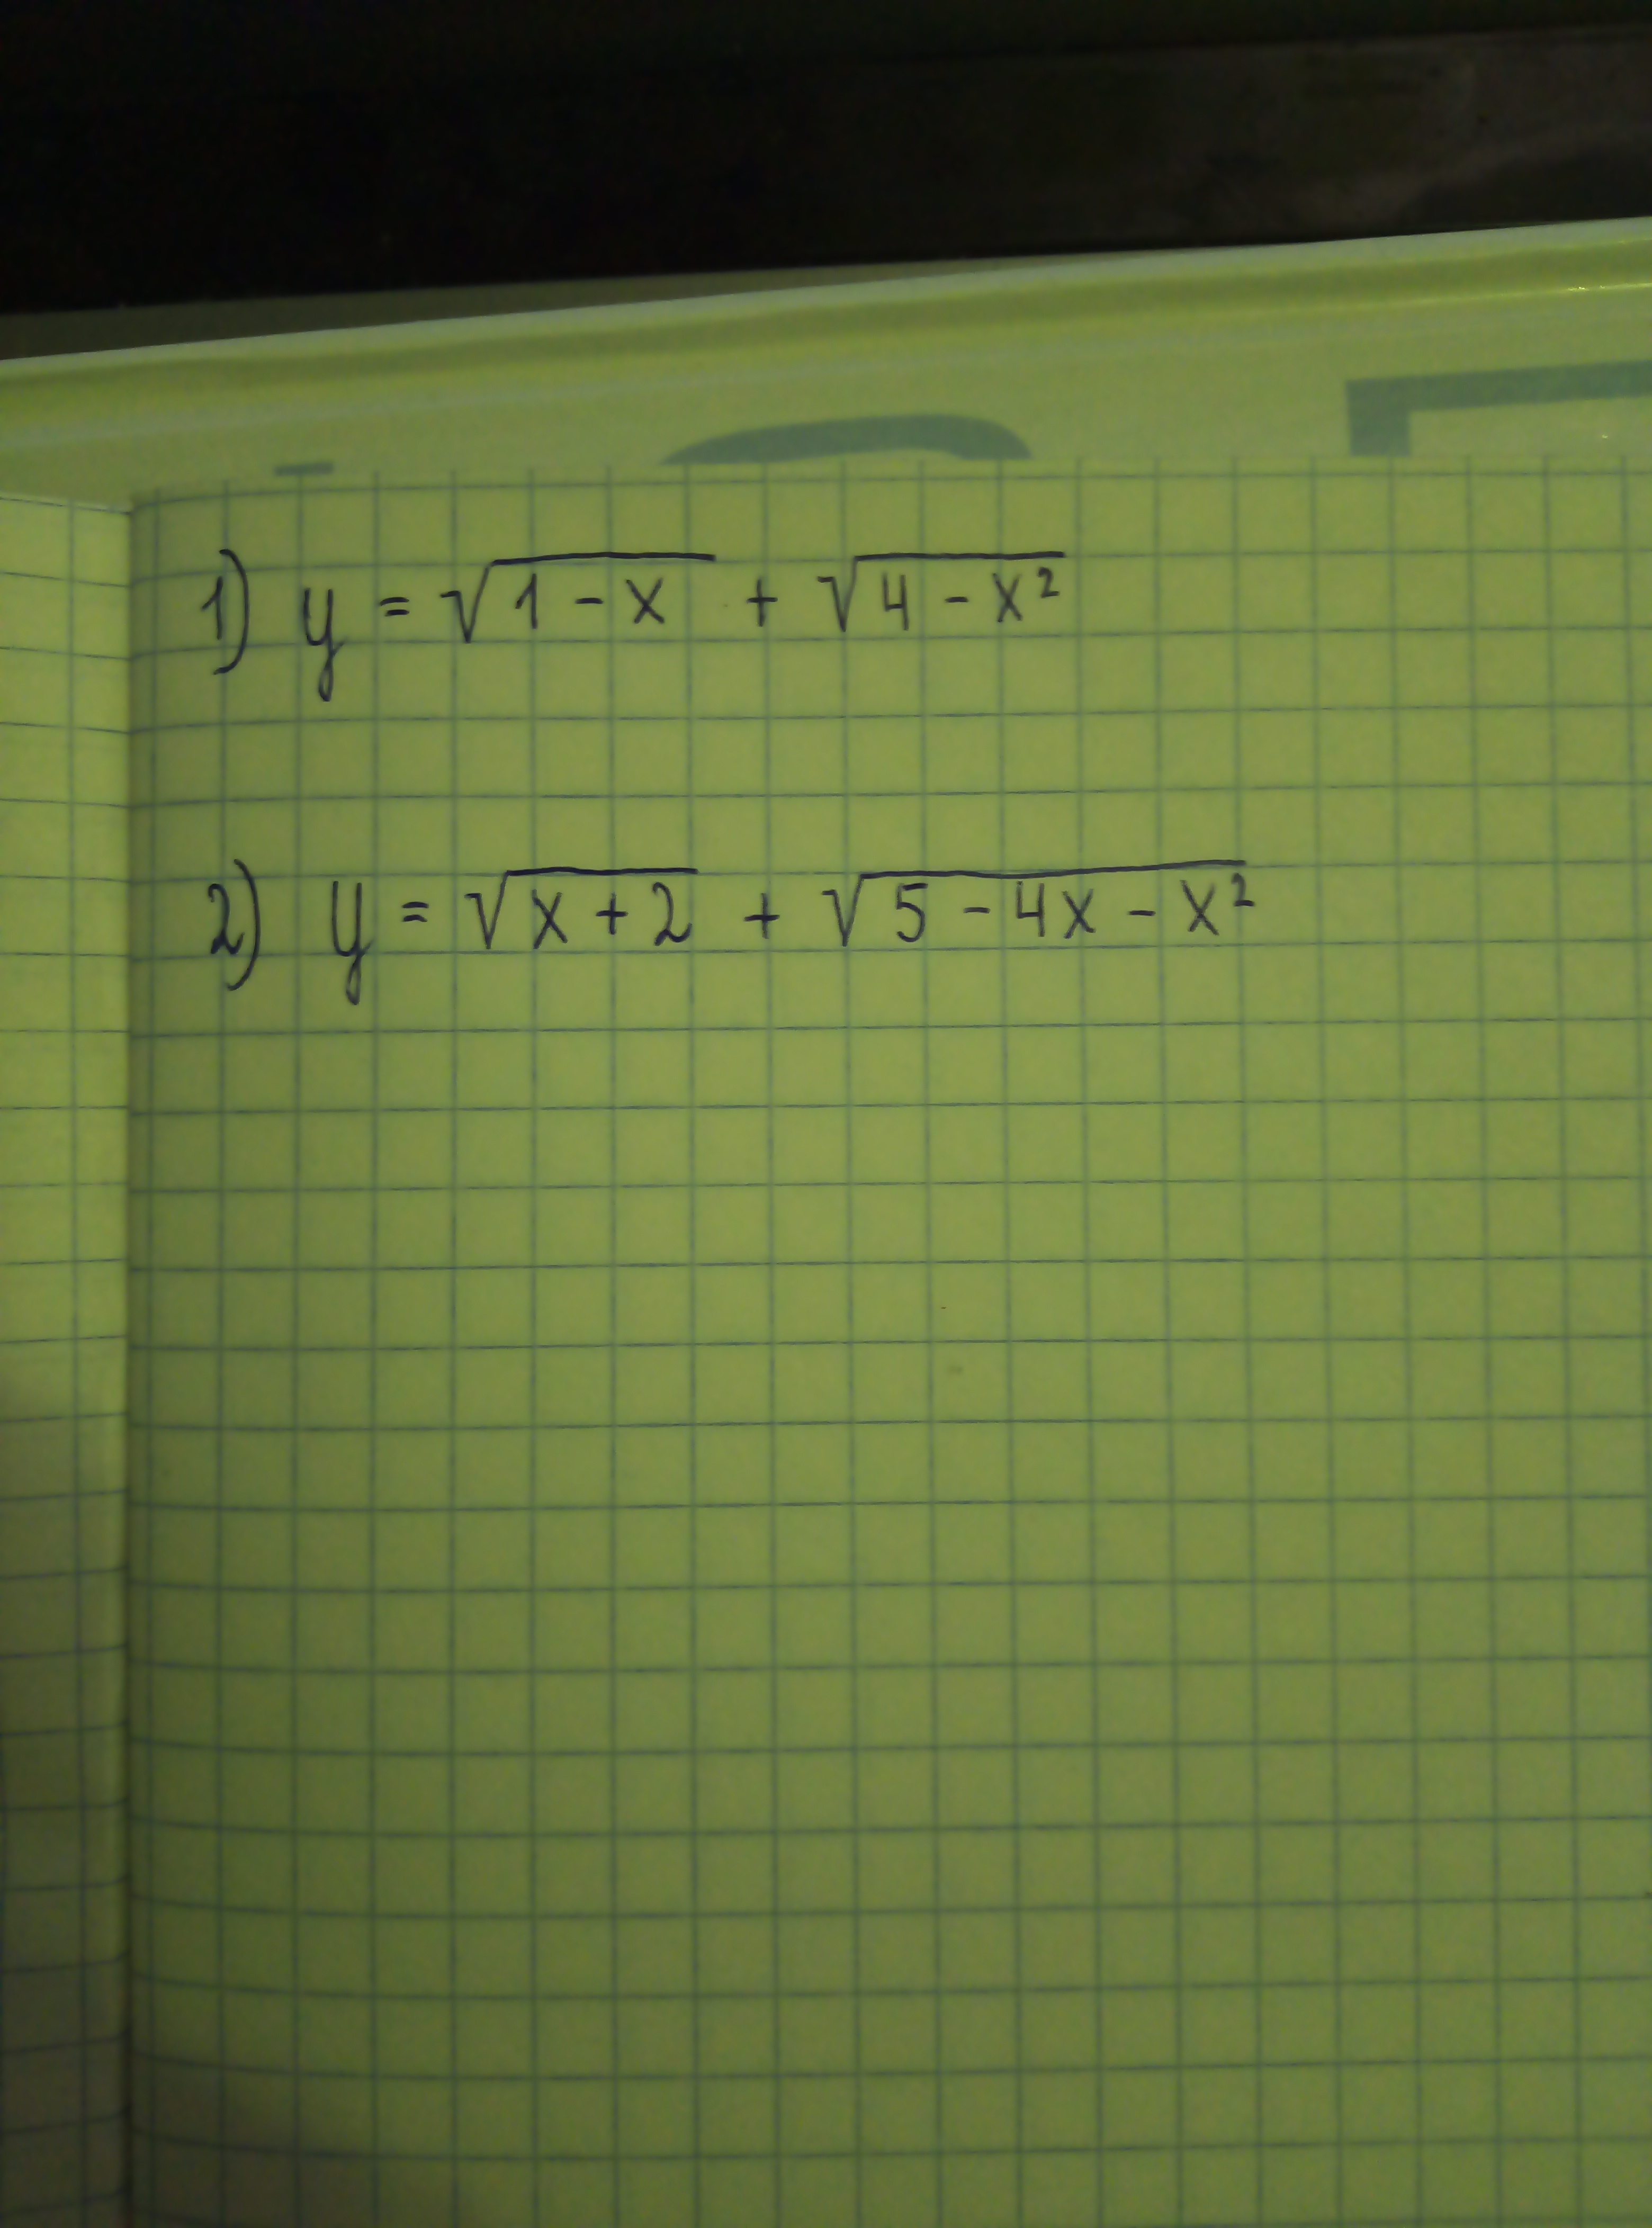 1) y = √(1 - x) + √(4 - x²)
2) y = √(x + 2) + √(5 - 4x - x²)